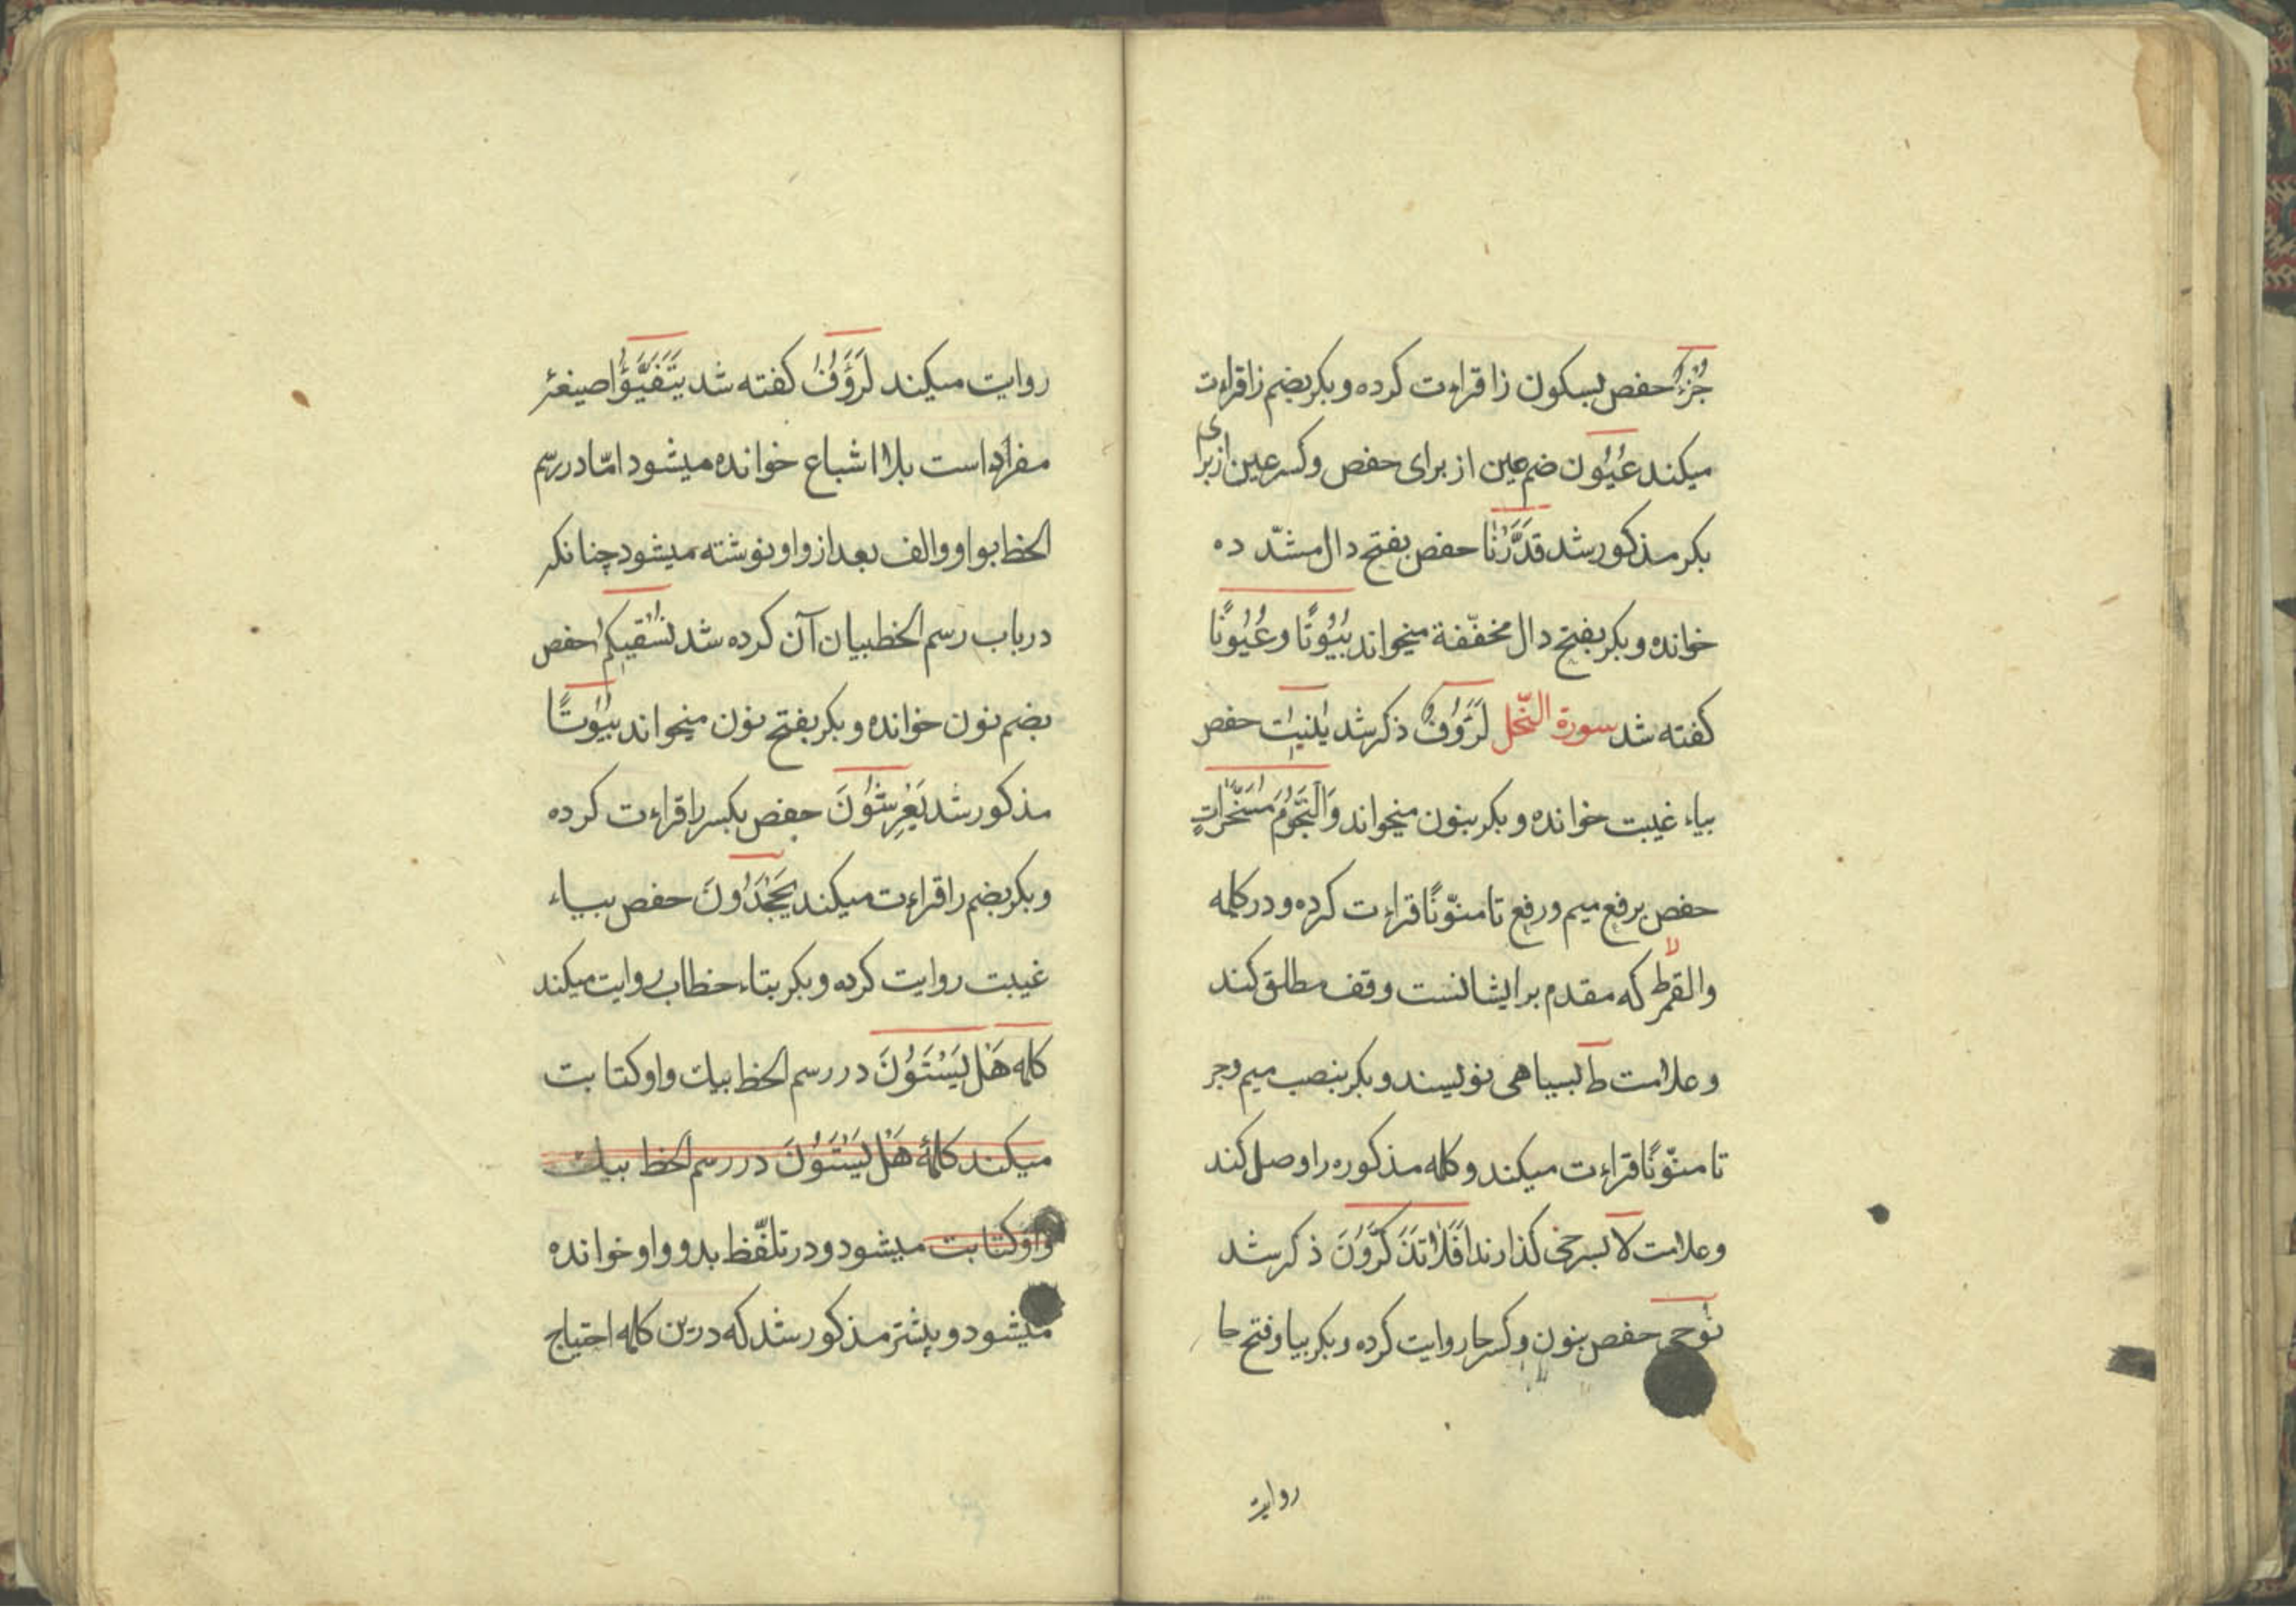 جُزْءٌ حفص بسكون زا قراءت كرده و بكر بضم زا قراءت
ميكند عُيُون ضم عين از براى حفص و كسر عين از براى
بكر مذكور شد قَدَّرْنَا حفص بفتح دال مشدّده
خوانده و بكر بفتح دال مخفّفة ميخواند بُيُوتًا وعُيُونًا
كفته شد سورة النّحل لَرَؤُوفٌ ذكر شد يُنْبِتُ حفص
بياء غيبت خوانده و بكر بنون ميخواند وَالنُّجُومُ مُسَخَّرَاتٌ
حفص برفع ميم ورفع تا منوّنًا قراءت كرده و در كلمه
والقمر ط لا كه مقدم بر ايشانست وقف مطلق كند
وعلامت ط بسياهى نويسند و بكر بنصب ميم وجر
تا منوّنًا قراءت ميكند و كلمه مذكوره را وصل كند
وعلامت لا بسرخى كذارند اَفَلَا تَذَكَّرُونَ ذكر شد
نُوحِى حفص بنون وكسر حا روايت كرده و بكر بيا وفتح حا
روايت
روايت ميكند لَرَؤُفٌ كفته شد يَتَفَيَّؤُا صيغهٔ
مفرد است بلا اشباع خوانده ميشود امّا در رسم
الخط بواو والف بعد از واو نوشته ميشود چنانكه
در باب رسم الخط بيان آن كرده شد نُسْقِيكُمْ حفص
بضم نون خوانده و بكر بفتح نون ميخواند بُيُوتًا
مذكور شد يَعْرِشُونَ حفص بكسر را قراءت كرده
و بكر بضم را قراءت ميكند يَجْحَدُونَ حفص بياء
غيبت روايت كرده و بكر بتاء خطاب روايت ميكند
كلمه هَلْ يَسْتَوُنَ در رسم الخط بيك واو كتابت
ميكند كلمهٔ هَلْ يَسْتَوُنَ در رسم الخط بيك
واو كتابت ميشود و در تلفّظ بدو واو خوانده
ميشود و پيشتر مذكور شد كه درين كلمه احتياج